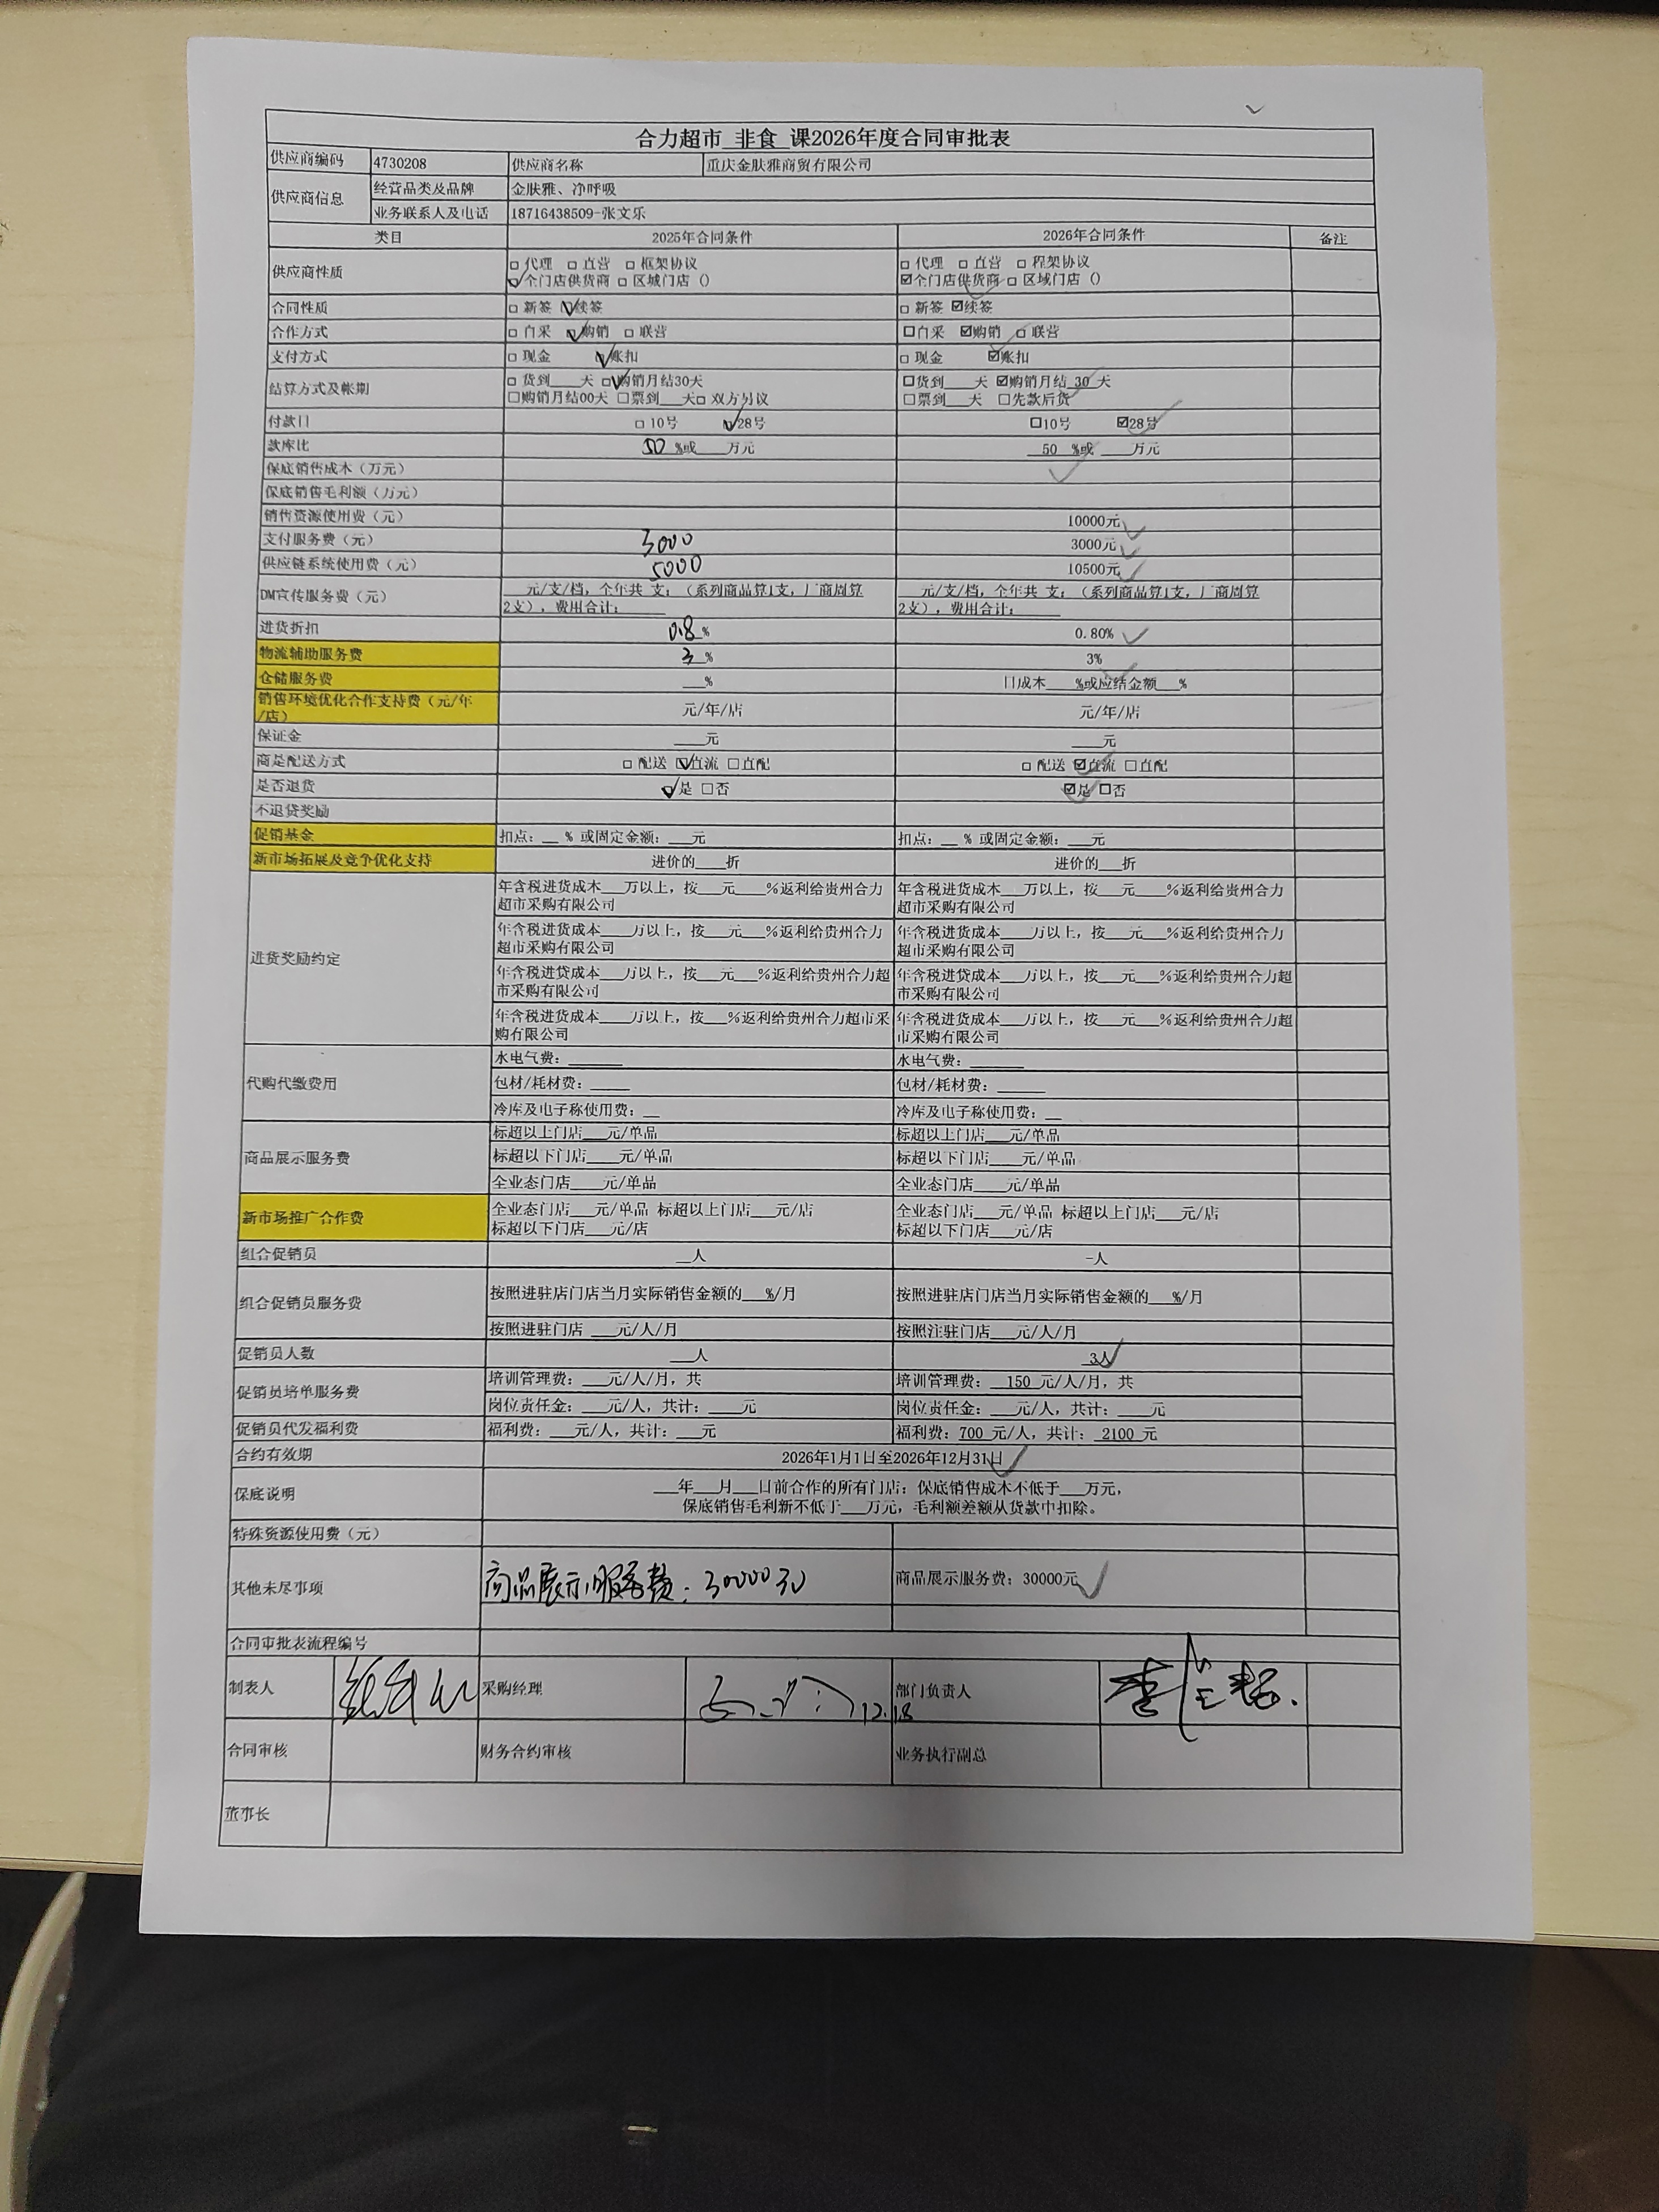 合力超市 非食 课2026年度合同审批表
供应商编码 4730208 供应商名称 重庆金肤雅商贸有限公司
供应商信息 经营品类及品牌 金肤雅、净呼吸
业务联系人及电话 18716438509-张文乐
类目 2025年合同条件 2026年合同条件 备注
供应商性质 □代理 □直营 □框架协议 □代理 □直营 □程架协议
☑全门店供货商 □区域门店() ☑全门店供货商 □区域门店()
合同性质 □新签 ☑续签 □新签 ☑续签
合作方式 □自采 ☑购销 □联营 □自采 ☑购销 □联营
支付方式 □现金 ☑账扣 □现金 ☑账扣
结算方式及帐期 □货到___天 ☑购销月结30天 □货到___天 ☑购销月结 30 天
□购销月结00天 □票到___天□ 双方另议 □票到___天 □先款后货
付款日 □10号 ☑28号 □10号 ☑28号
款库比 50 %或___万元 50 %或___万元
保底销售成本(万元)
保底销售毛利额(万元)
销售资源使用费(元) 10000元
支付服务费(元) 3000 3000元
供应链系统使用费(元) 5000 10500元
DM宣传服务费(元) 元/支/档,全年共 支;(系列商品算1支,厂商周算 元/支/档,全年共 支;(系列商品算1支,厂商周算
2支),费用合计:______ 2支),费用合计:______
进货折扣 0.8 % 0.80%
物流辅助服务费 3 % 3%
仓储服务费 ___% 成本___%或应结金额___%
销售环境优化合作支持费(元/年 元/年/店 元/年/店
/店)
保证金 ____元 ____元
商品配送方式 □配送 ☑直流 □直配 □配送 ☑直流 □直配
是否退货 ☑是 □否 ☑是 □否
不退货奖励
促销基金 扣点:__% 或固定金额:___元 扣点:__% 或固定金额:___元
新市场拓展及竞争优化支持 进价的___折 进价的___折
进货奖励约定 年含税进货成本___万以上,按___元____%返利给贵州合力 年含税进货成本___万以上,按___元____%返利给贵州合力
超市采购有限公司 超市采购有限公司
年含税进货成本____万以上,按___元___%返利给贵州合力 年含税进货成本____万以上,按___元___%返利给贵州合力
超市采购有限公司 超市采购有限公司
年含税进货成本___万以上,按___元___%返利给贵州合力超 年含税进货成本___万以上,按___元___%返利给贵州合力超
市采购有限公司 市采购有限公司
年含税进货成本____万以上,按___%返利给贵州合力超市采 年含税进货成本____万以上,按___元___%返利给贵州合力超
购有限公司 市采购有限公司
代购代缴费用 水电气费:______ 水电气费:______
包材/耗材费:_____ 包材/耗材费:_____
冷库及电子称使用费:__ 冷库及电子称使用费:__
商品展示服务费 标超以上门店___元/单品 标超以上门店___元/单品
标超以下门店____元/单品 标超以下门店____元/单品
全业态门店____元/单品 全业态门店____元/单品
新市场推广合作费 全业态门店___元/单品 标超以上门店___元/店 全业态门店___元/单品 标超以上门店___元/店
标超以下门店___元/店 标超以下门店___元/店
组合促销员 __人 -人
组合促销员服务费 按照进驻店门店当月实际销售金额的___%/月 按照进驻店门店当月实际销售金额的___%/月
按照进驻门店 ___元/人/月 按照注驻门店___元/人/月
促销员人数 ___人 3人
促销员培单服务费 培训管理费:___元/人/月,共 培训管理费: 150 元/人/月,共
岗位责任金:___元/人,共计:____元 岗位责任金:___元/人,共计:____元
促销员代发福利费 福利费:___元/人,共计:___元 福利费:700 元/人,共计: 2100 元
合约有效期 2026年1月1日至2026年12月31日
保底说明 ___年___月___日前合作的所有门店:保底销售成本不低于___万元,
保底销售毛利新不低于___万元,毛利额差额从货款中扣除。
特殊资源使用费(元)
其他未尽事项 商品展示服务费:30000元 商品展示服务费:30000元
合同审批表流程编号
制表人 采购经理 12.18 部门负责人
合同审核 财务合约审核 业务执行副总
董事长